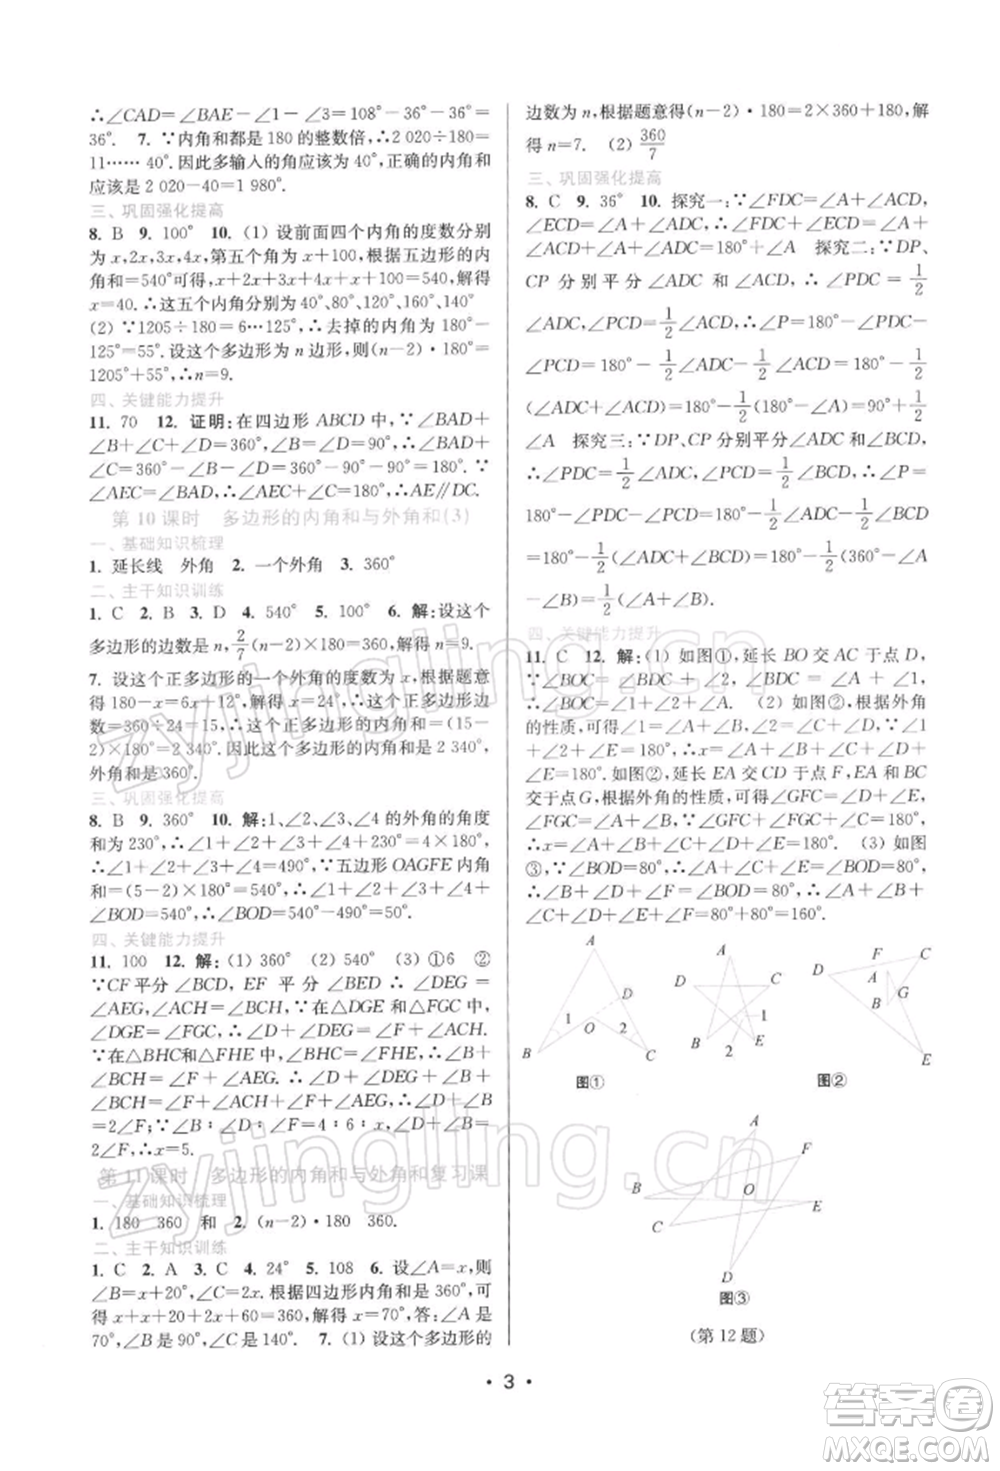 ∴∠CAD=∠BAE-∠1-∠3=108°-36°-36°=
36°. 7. ∵内角和都是 180 的整数倍,∴2 020÷180=
11……40. 因此多输入的角应该为 40°,正确的内角和
应该是 2 020-40=1 980°.
三、巩固强化提高
8. B 9. 100° 10. (1) 设前面四个内角的度数分别
为 x,2x,3x,4x,第五个角为 x+100,根据五边形的内
角和=540°可得,x+2x+3x+4x+x+100=540,解得
x=40. ∴这五个内角分别为 40°、80°、120°、160°、140°
(2) ∵1205÷180=6…125°,∴去掉的内角为 180°-
125°=55°. 设这个多边形为 n 边形,则(n-2)·180°=
1205°+55°,∴n=9.
四、关键能力提升
11. 70 12. 证明:在四边形 ABCD 中,∵∠BAD+
∠B+∠C+∠D=360°,∠B=∠D=90°,∴∠BAD+
∠C=180°. ∵∠AEC=∠BAD,∴∠AEC+∠C=180°,∴AE∥DC.
第 10 课时 多边形的内角和与外角和(3)
一、基础知识梳理
1. 延长线 外角 2. 一个外角 3. 360°
二、主干知识训练
1. C 2. B 3. D 4. 540° 5. 100° 6. 解:设这个
多边形的边数是 n,2/7(n-2)×180=360,解得 n=9.
7. 设这个正多边形的一个外角的度数为 x,根据题意
得 180-x=6x+12°,解得 x=24°,∴这个正多边形边
数=360÷24=15,∴这个正多边形的内角和=(15-
2)×180°=2 340°. ∴这个多边形的内角和是 2 340°,
外角和是360°.
三、巩固强化提高
8. B 9. 360° 10. 解:∠1、∠2、∠3、∠4 的外角的角度
和为220°,∴∠1+∠2+∠3+∠4+220°=4×180°,
∴∠1+∠2+∠3+∠4=490°,∵五边形 OAGFE 内角
和=(5-2)×180°=540°,∴∠1+∠2+∠3+∠4+
∠BOD=540°,∴∠BOD=540°-490°=50°.
四、关键能力提升
11. 100 12. 解:(1) 360° (2) 540° (3) ①6 ②
∵CF平分∠BCD,EF 平分∠BED ∴∠DEG=
∠AEG,∠ACH=∠BCH,∵在△DGE 和△FGC 中,
∠DGE=∠FGC,∴∠D+∠DEG=∠F+∠ACH.
∵在△BHC和△FHE 中,∠BHC=∠FHE,∴∠B+
∠BCH=∠F+∠AEG. ∴∠D+∠DEG+∠B+
∠BCH=∠F+∠ACH+∠F+∠AEG,∴∠D+∠B
=2∠F;∵∠B:∠D:∠F=4:6:x,∴x=
5.
第 11 课时 多边形的内角和与外角和复习课
一、基础知识梳理
1. 180 360 和 2. (n-2)·180 360.
二、主干知识训练
1. C 2. A 3. C 4. 24° 5. 108 6. 设∠A=x,则
∠B=x+20°,∠C=2x. 根据四边形内角和是 360°,可
得 x+x+20+2x+60=360,解得 x=70°,答:∠A 是
70°,∠B 是 90°,∠C 是 140°. 7. (1) 设这个多边形的
边数为 n,根据题意得(n-2)·180=2×360+180,解
得 n=7. (2) 360/7
三、巩固强化提高
8. C 9. 36° 10. 探究一:∵∠FDC=∠A+∠ACD,
∠ECD=∠A+∠ADC,∴∠FDC+∠ECD=∠A+
∠ACD+∠A+∠ADC=180°+∠A 探究二:∵DP、
CP 分别平分 ∠ADC 和 ∠ACD,∴∠PDC=1/2
∠ADC,∠PCD=1/2∠ACD,∴∠P=180°-∠PDC-
∠PCD=180°-1/2∠ADC-1/2∠ACD=180°-1/2
(∠ADC+∠ACD)=180°-1/2(180°-∠A)=90°+1/2
∠A 探究三:∵DP、CP 分别平分∠ADC和∠BCD,
∴∠PDC=1/2∠ADC,∠PCD=1/2∠BCD,∴∠P=
180°-∠PDC-∠PCD=180°-1/2∠ADC-1/2∠BCD
=180°-1/2(∠ADC+∠BCD)=180°-1/2(360°-∠A
-∠B)=1/2(∠A+∠B).
四、关键能力提升
11. C 12. 解:(1) 如图①,延长 BO 交 AC 于点 D,
∵∠BOC=∠BDC+∠2,∠BDC=∠A+∠1,
∴∠BOC=∠1+∠2+∠A. (2) 如图②,根据外角
的性质,可得∠1=∠A+∠B,∠2=∠C+∠D,∵∠1
+∠2+∠E=180°,∴x=∠A+∠B+∠C+∠D+
∠E=180°. 如图②,延长 EA 交 CD 于点 F,EA和 BC
交于点G,根据外角的性质,可得∠GFC=∠D+∠E,
∠FGC=∠A+∠B,∵∠GFC+∠FGC+∠C=180°,
∴x=∠A+∠B+∠C+∠D+∠E=180°. (3) 如图
③,∵∠BOD=80°,∴∠A+∠C+∠E=∠BOD=80°,
∠B+∠D+∠F=∠BOD=80°,∴∠A+∠B+
∠C+∠D+∠E+∠F=80°+80°=160°.
A
D
1 O 2
B C
图①
A
D E
B C
1
2
F C
D
A
B G
E
图②
A
F
B O
C E
D
图③
(第 12 题)
· 3 ·
zyjingling.cn
zyjingling.cn
答案圈
MXQE.COM